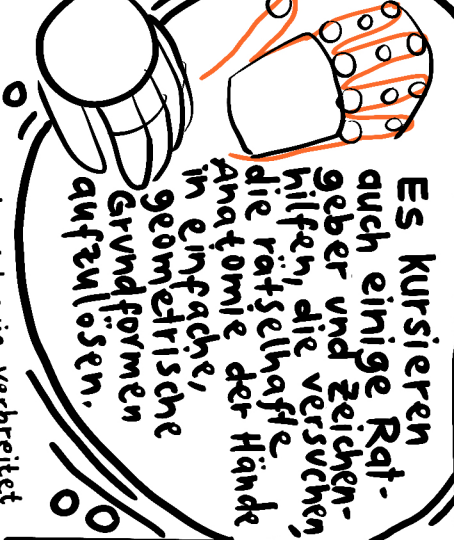 Es kursieren
auch einige Rat-
geber und Zeichen-
hilfen, die versuchen,
die rätselhafte
Anatomie der Hände
in einfache,
geometrische
Grundformen
aufzulösen.
verbreitet